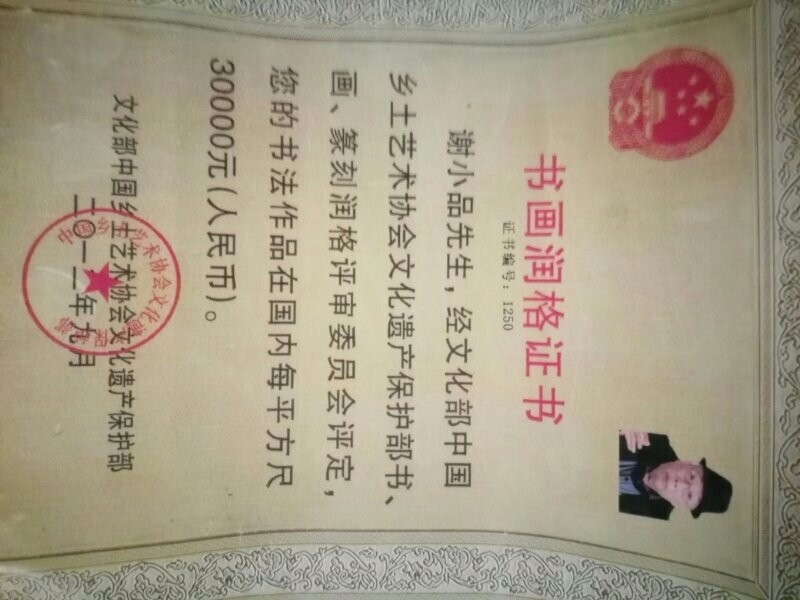 书画润格证书
证书编号：1250
谢小品先生，经文化部中国
乡土艺术协会文化遗产保护部书、
画、篆刻润格评审委员会评定，
您的书法作品在国内每平方尺
30000元(人民币)。
文化部中国乡土艺术协会文化遗产保护部
二〇一二年九月